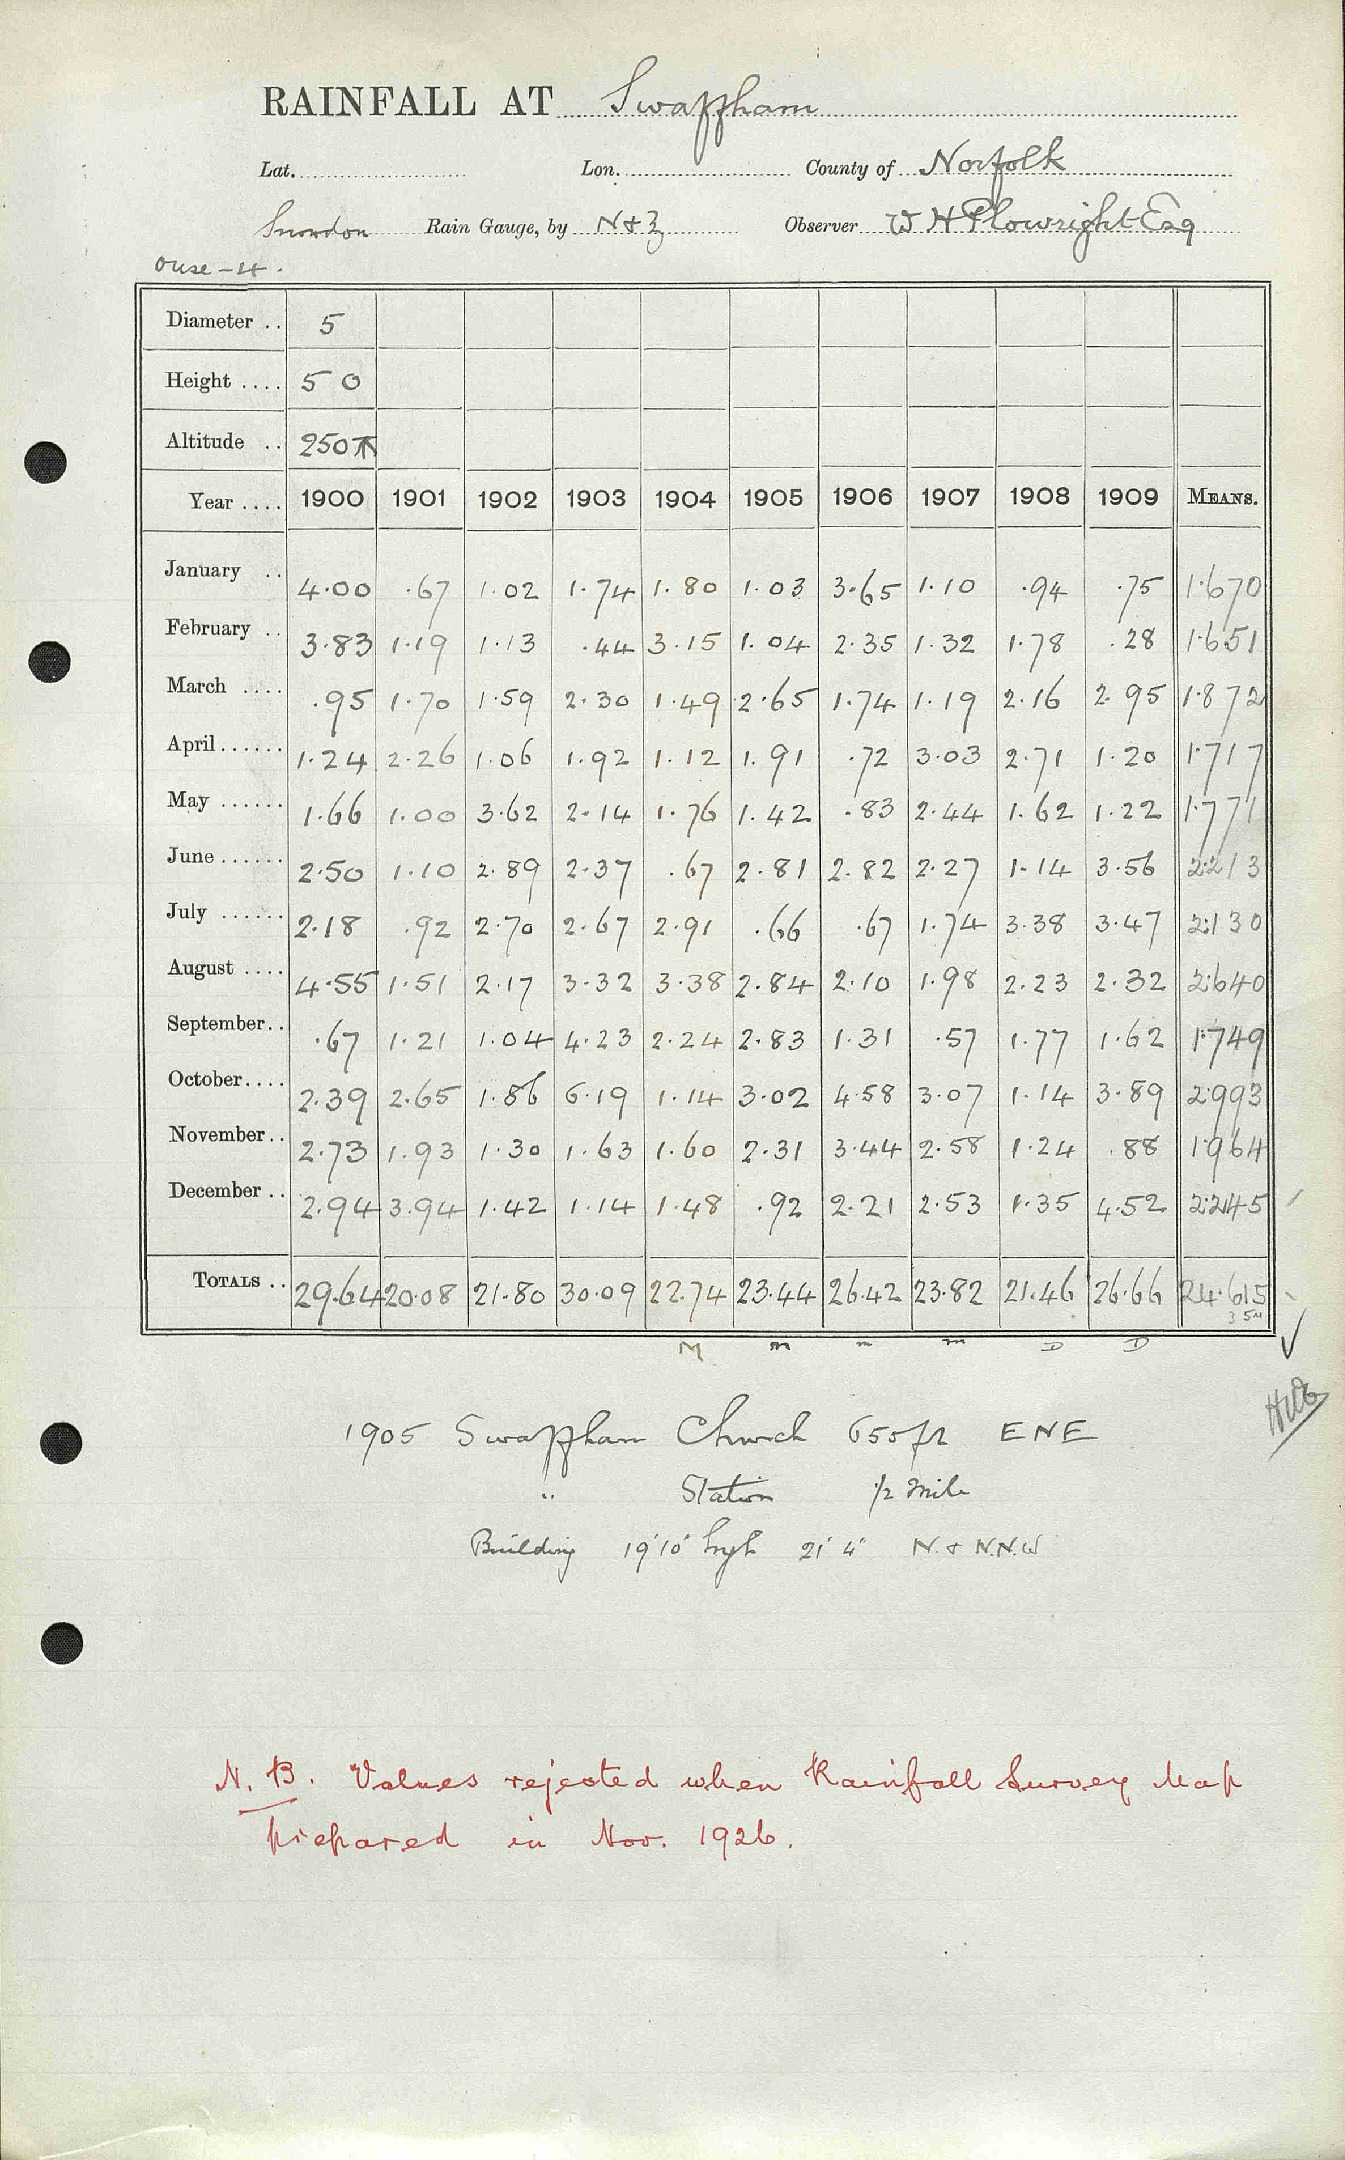 RAINFALL AT Swaffham
Lat. Lon. County of Norfolk
Snowdon Rain Gauge, by N & Z Observer W H Plowright Esq
Ouse - 4.
Diameter .. 5
Height .... 5 0
Altitude .. 250
Year .... 1900 1901 1902 1903 1904 1905 1906 1907 1908 1909 MEANS.
January .. 4.00 .67 1.02 1.74 1.80 1.03 3.65 1.10 .94 .75 1.670
February .. 3.83 1.19 1.13 .44 3.15 1.04 2.35 1.32 1.78 .28 1.651
March .... .95 1.70 1.59 2.30 1.49 2.65 1.74 1.19 2.16 2.95 1.872
April ...... 1.24 2.26 1.06 1.92 1.12 1.91 .72 3.03 2.71 1.20 1.717
May ...... 1.66 1.00 3.62 2.14 1.76 1.42 .83 2.44 1.62 1.22 1.771
June ...... 2.50 1.10 2.89 2.37 .67 2.81 2.82 2.27 1.14 3.56 2.213
July ...... 2.18 .92 2.70 2.67 2.91 .66 .67 1.74 3.38 3.47 2.130
August .... 4.55 1.51 2.17 3.32 3.38 2.84 2.10 1.98 2.23 2.32 2.640
September .. .67 1.21 1.04 4.23 2.24 2.83 1.31 .57 1.77 1.62 1.749
October .... 2.39 2.65 1.86 6.19 1.14 3.02 4.58 3.07 1.14 3.89 2.993
November .. 2.73 1.93 1.30 1.63 1.60 2.31 3.44 2.58 1.24 .88 1.964
December .. 2.94 3.94 1.42 1.14 1.48 .92 2.21 2.53 1.35 4.52 2.245
TOTALS .. 29.64 20.08 21.80 30.09 22.74 23.44 26.42 23.82 21.46 26.66 24.615
M m m m D D
1905 Swaffham Church 655 ft ENE
" Station 1/2 mile
Building 19'10" high 21' 4" N. & N.N.W
N.B. Values rejected when Rainfall Survey Map
prepared in Nov. 1926.